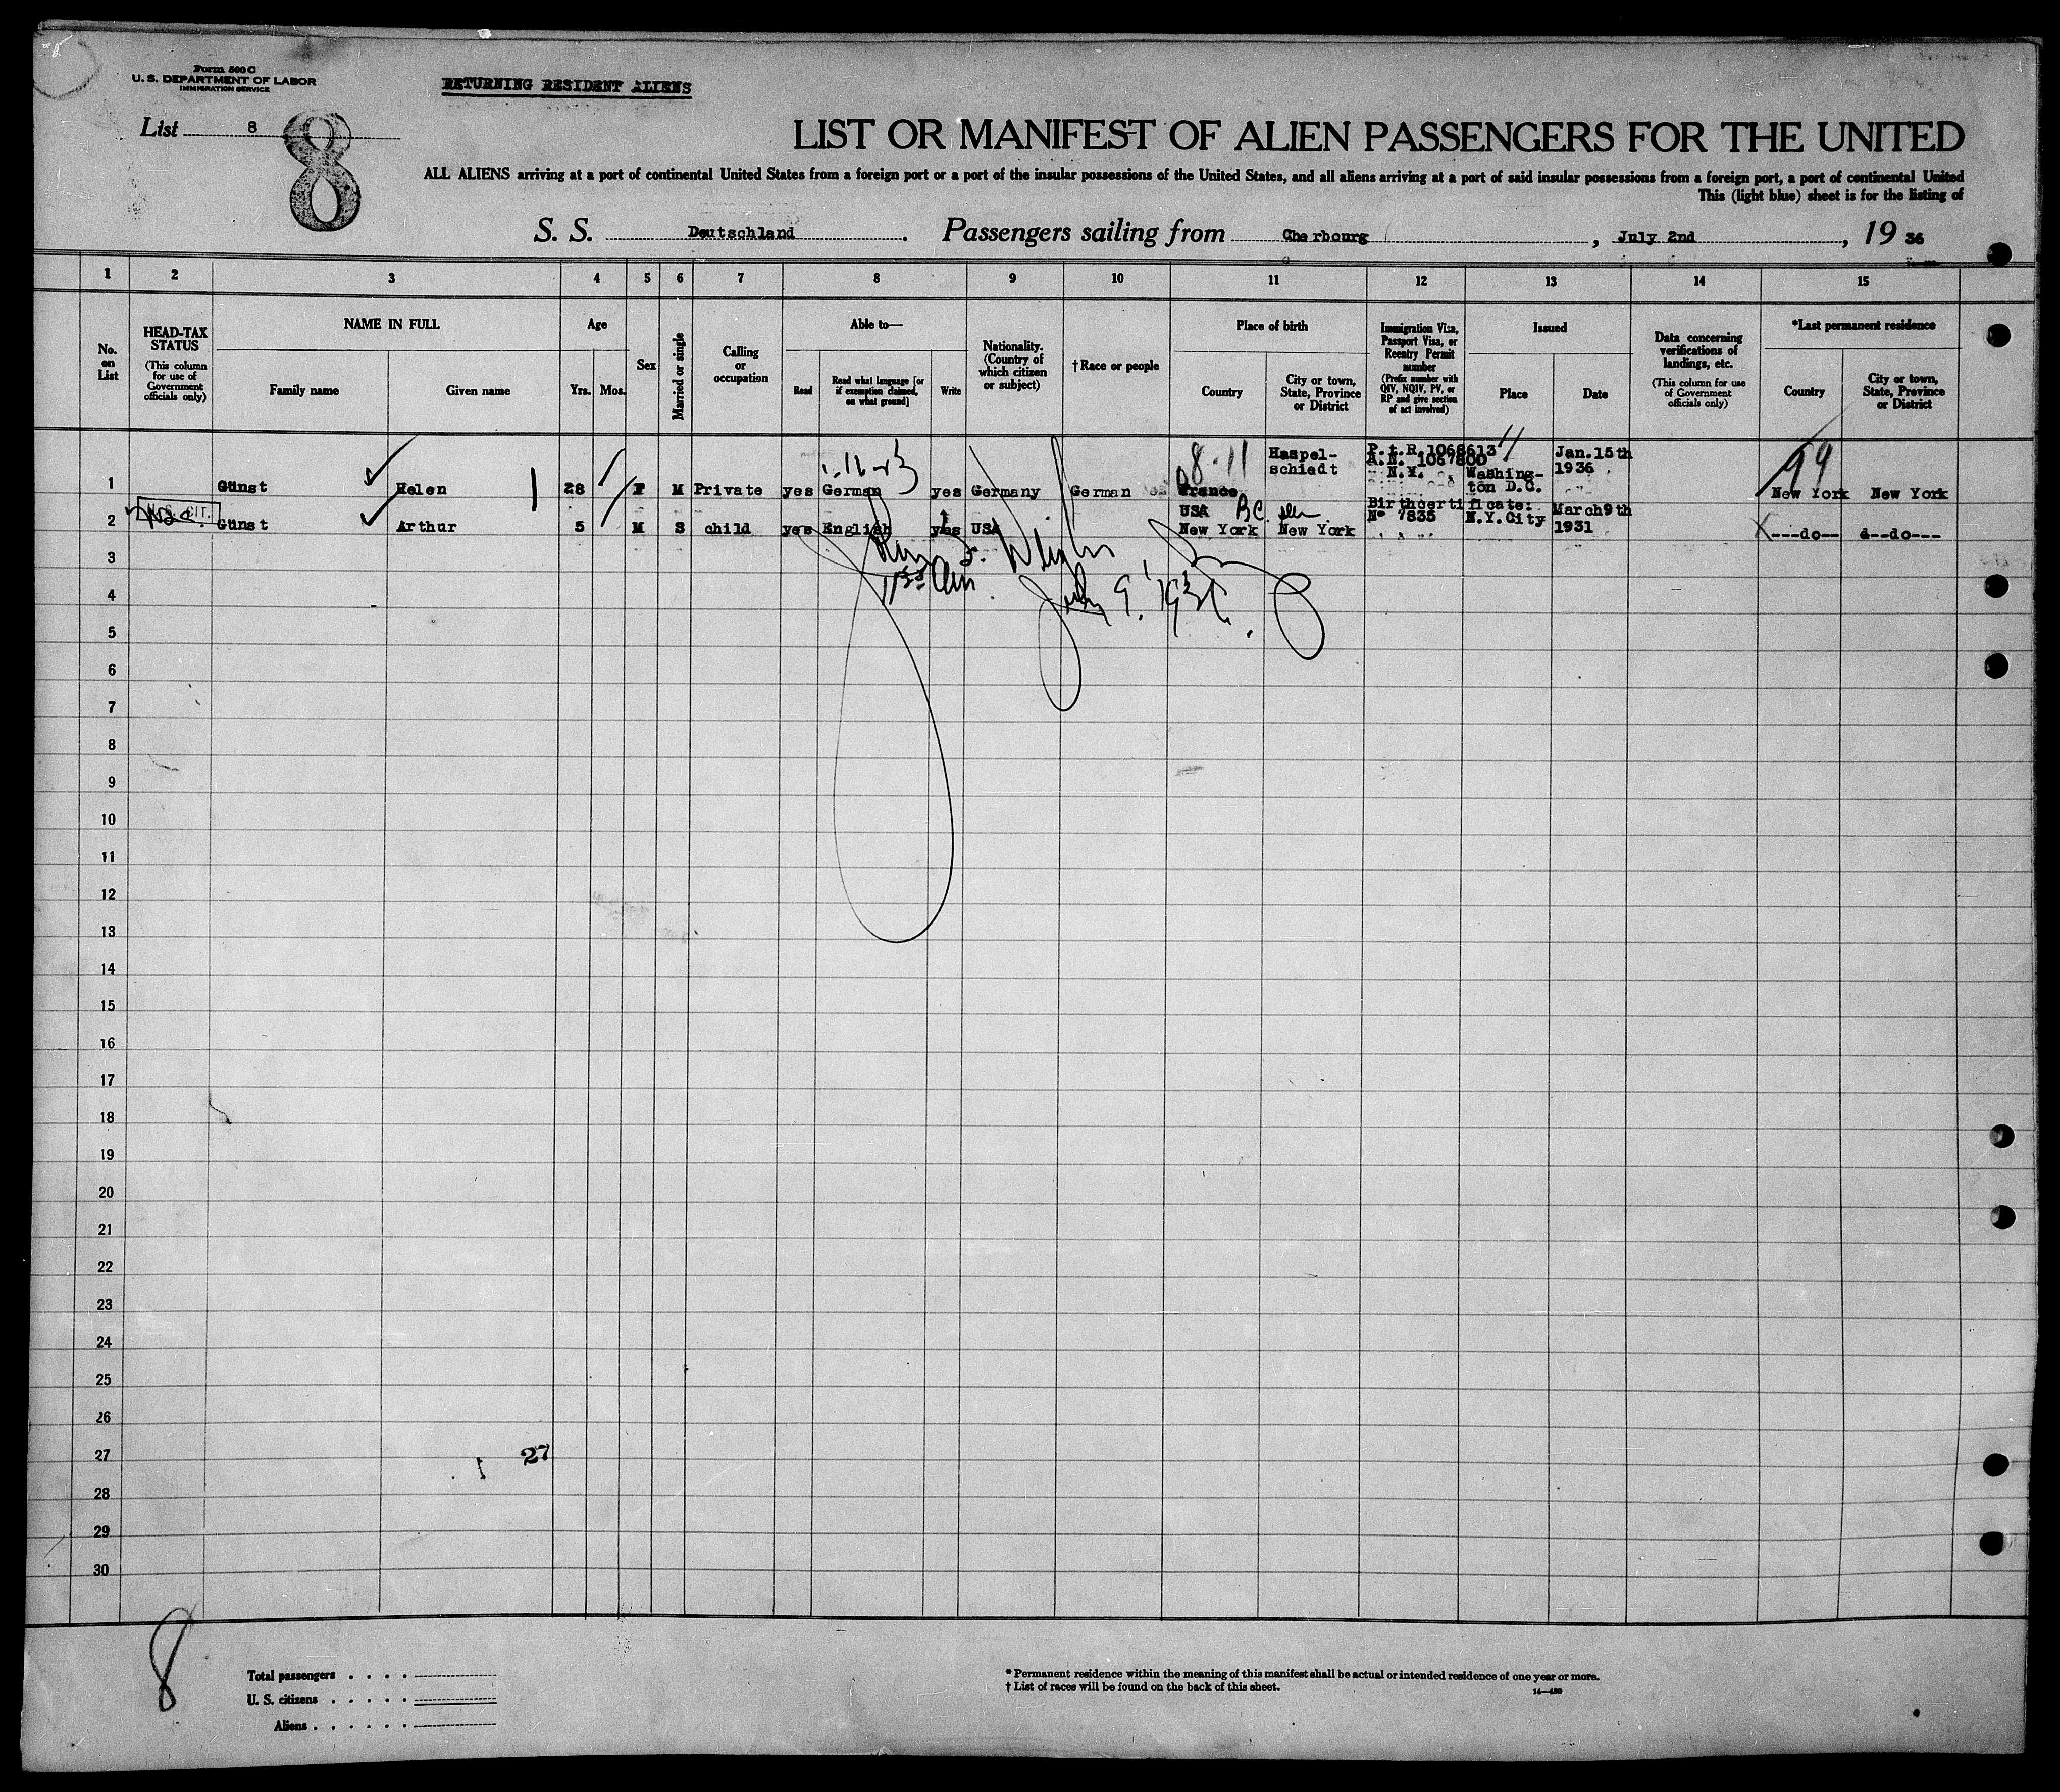 Form 500 C
U. S. DEPARTMENT OF LABOR
IMMIGRATION SERVICE
RETURNING RESIDENT ALIENS
List 8
8
LIST OR MANIFEST OF ALIEN PASSENGERS FOR THE UNITED
ALL ALIENS arriving at a port of continental United States from a foreign port or a port of the insular possessions of the United States, and all aliens arriving at a port of said insular possessions from a foreign port, a port of continental United
This (light blue) sheet is for the listing of
S. S. Deutschland. Passengers sailing from Cherbourg, July 2nd, 19 36
1 2 3 4 5 6 7 8 9 10 11 12 13 14 15
No. on List
HEAD-TAX STATUS
(This column for use of Government officials only)
NAME IN FULL
Family name
Given name
Age
Yrs.
Mos.
Sex
Married or single
Calling or occupation
Able to—
Read
Read what language [or if exemption claimed, on what ground]
Write
Nationality. (Country of which citizen or subject)
† Race or people
Place of birth
Country
City or town, State, Province or District
Immigration Visa, Passport Visa, or Reentry Permit number
(Prefix number with QIV, NQIV, PV, or RP and give section of act involved)
Issued
Place
Date
Data concerning verifications of landings, etc.
(This column for use of Government officials only)
*Last permanent residence
Country
City or town, State, Province or District
1 Günst Helen 28 F M Private yes German yes Germany German France Haspel-schiedt P.t.R. 1068613 A.N. 1067800 N.Y. Washing-ton D.C. Jan.15th 1936 New York New York
8-11
99
U.S. CIT.
2 Günst Arthur 5 M S child yes English yes USA USA New York New York Birthcertificate: No 7835 N.Y.City March9th 1931 ---do-- d--do---
BC
July 9, 1936.
3
4
5
6
7
8
9
10
11
12
13
14
15
16
17
18
19
20
21
22
23
24
25
26
27
27
28
29
30
8
Total passengers . . . .
U. S. citizens . . . . .
Aliens . . . . . .
* Permanent residence within the meaning of this manifest shall be actual or intended residence of one year or more.
† List of races will be found on the back of this sheet.
14—480